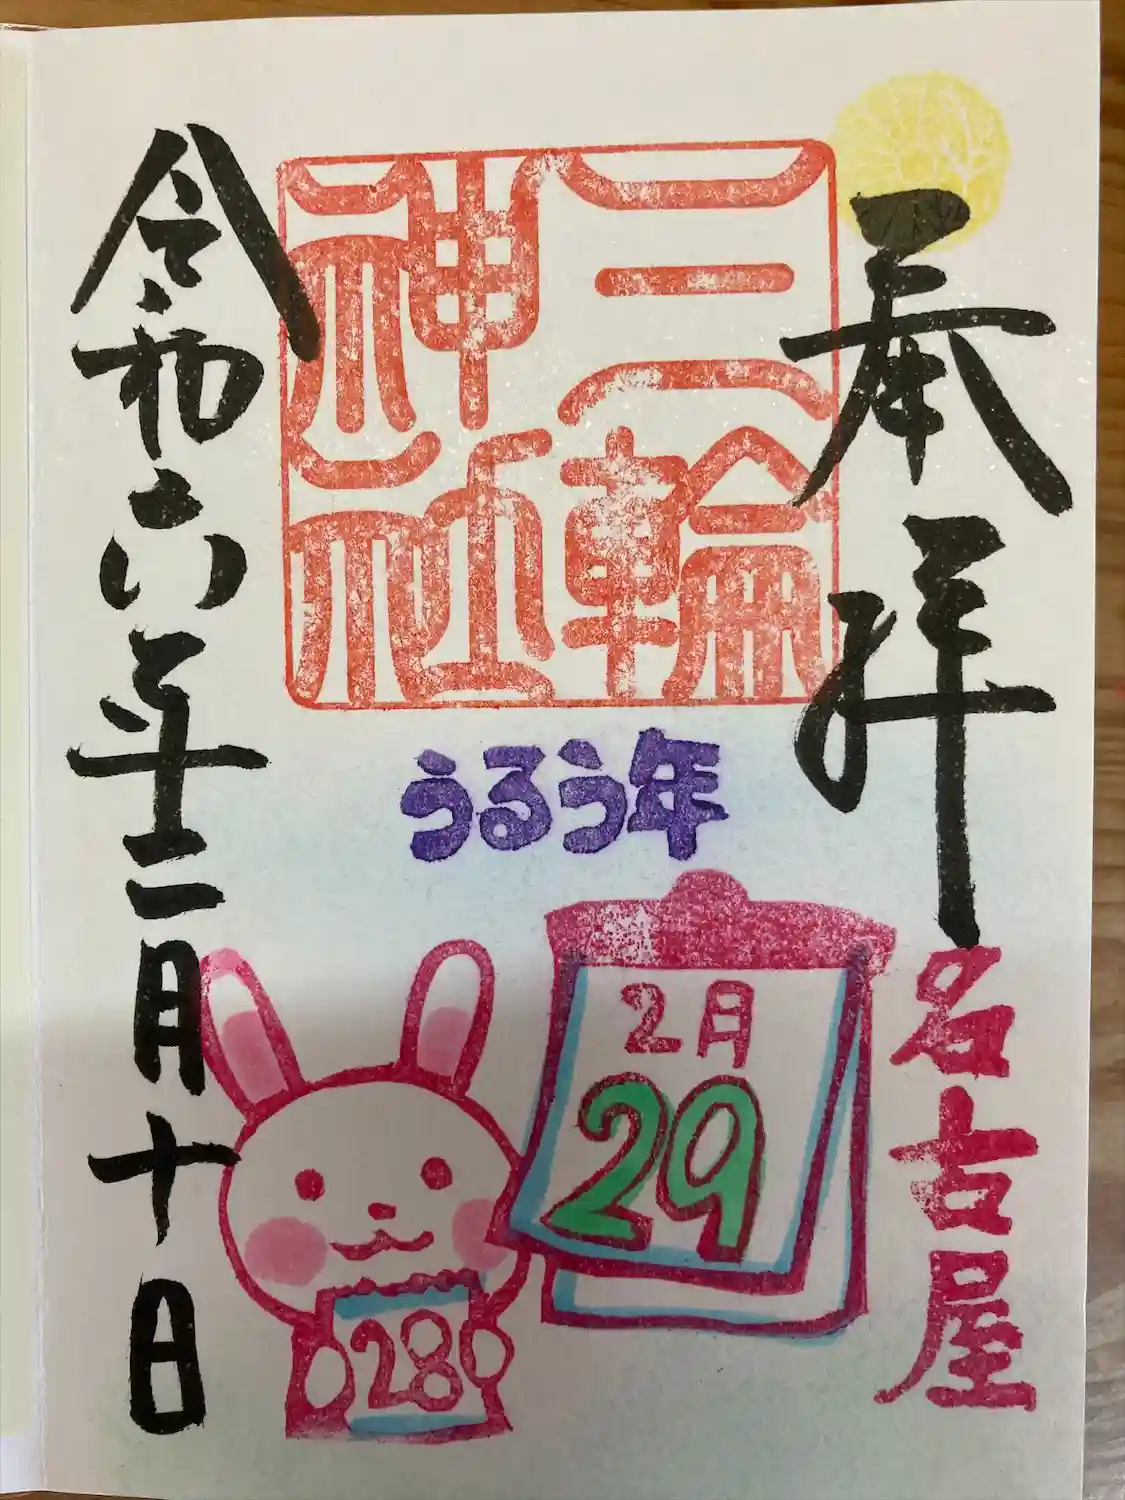 奉拝
名古屋
三輪
神社
うるう年
2月
29
28
令和六年二月十日